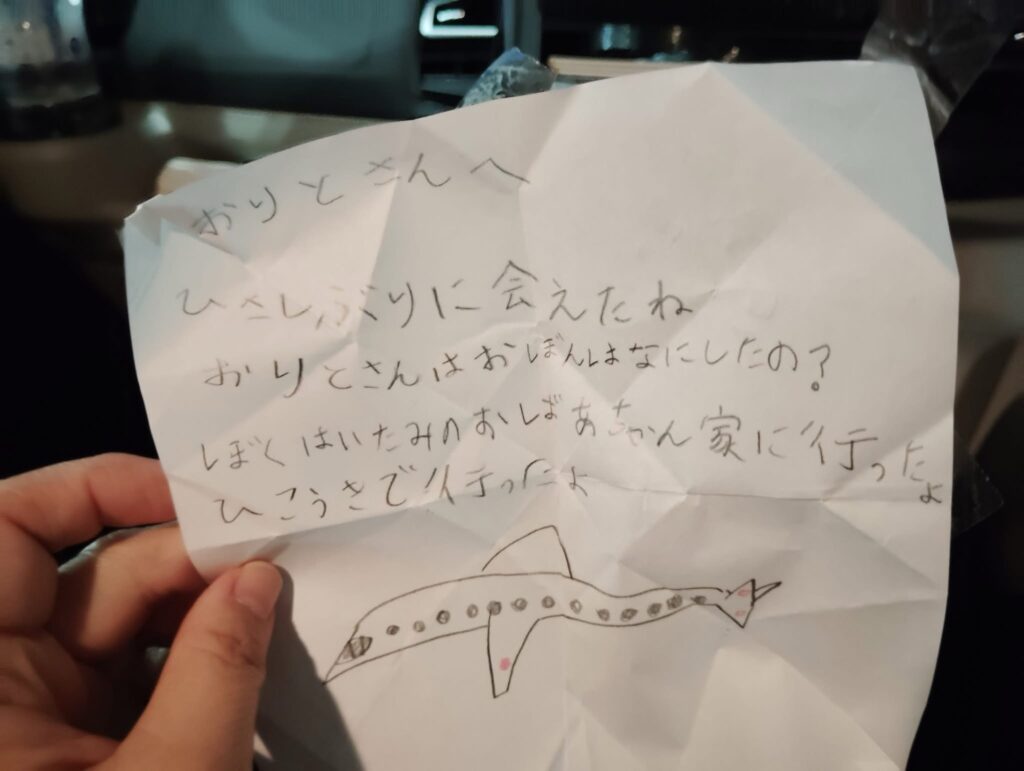 おりとさんへ
ひさしぶりに会えたね
おりとさんはおぼんはなにしたの?
ぼくはいたみのおばあちゃん家に行ったよ
ひこうきで行ったよ